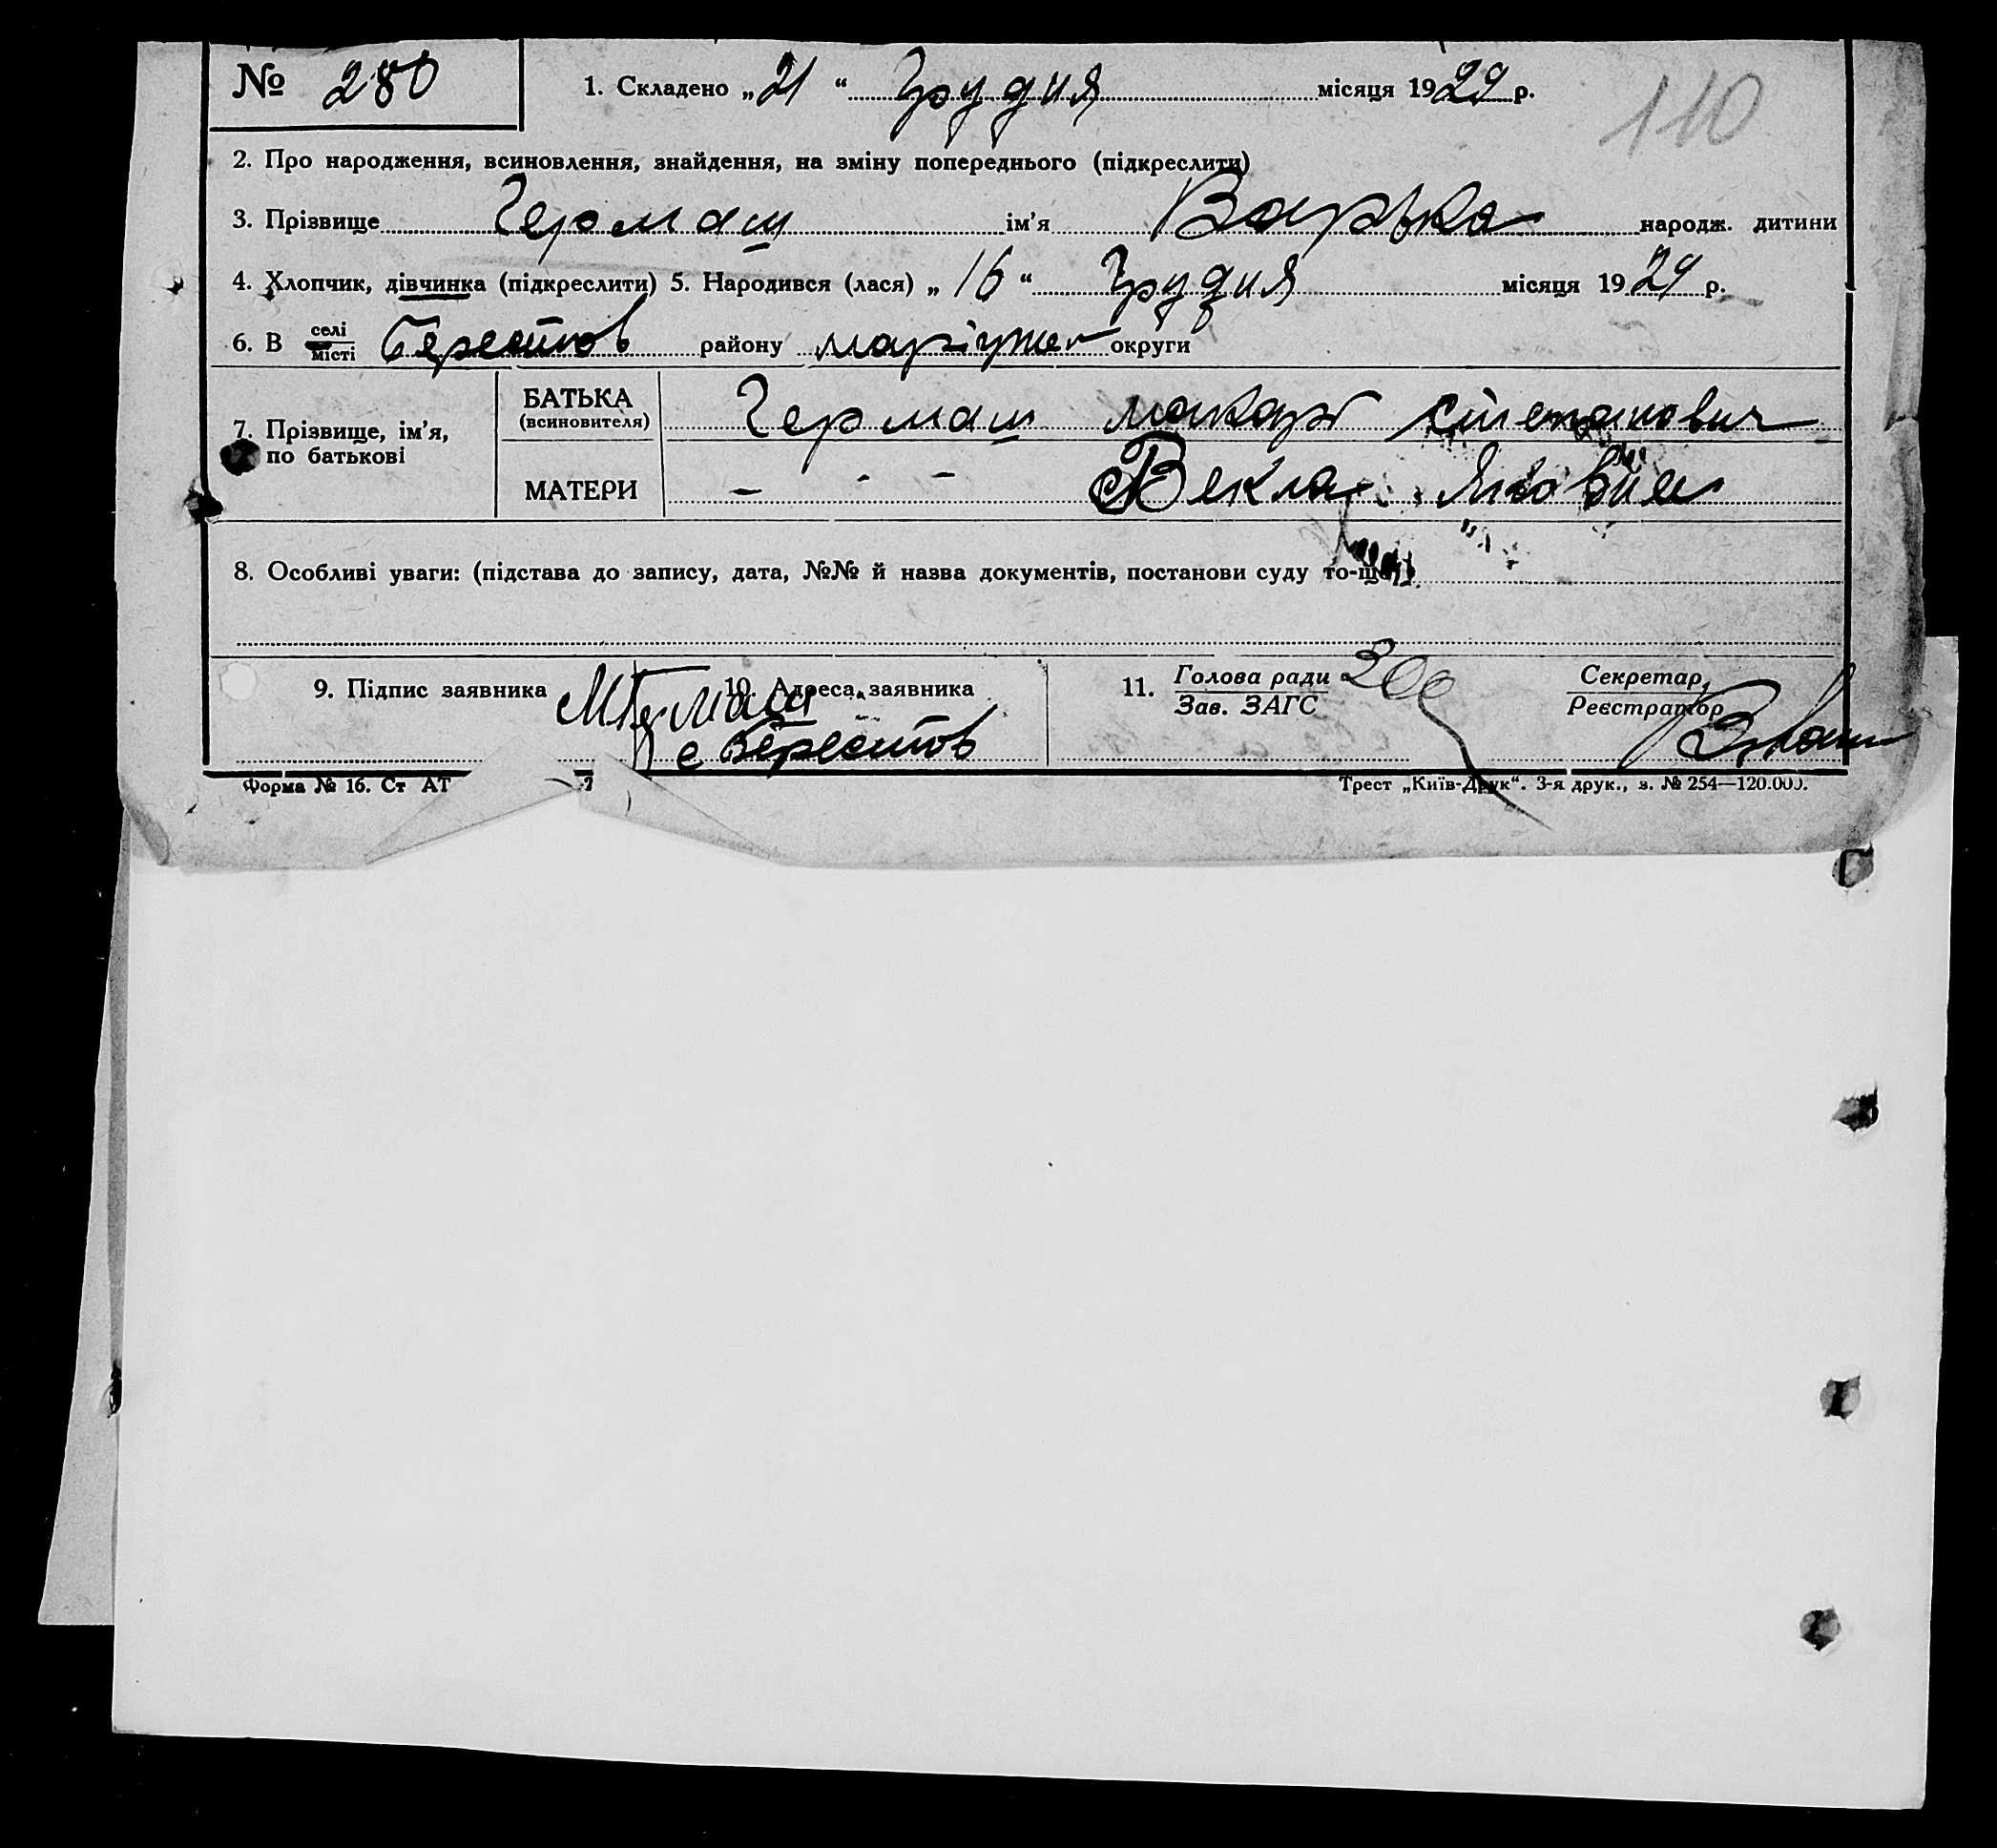 № 280 1. Складено „21“ Грудня місяця 1929 р.
110
2. Про народження, всиновлення, знайдення, на зміну попереднього (підкреслити)
3. Прізвище Гермаш ім’я Варька народж. дитини
4. Хлопчик, дівчинка (підкреслити) 5. Народився (лася) „16“ Грудня місяця 1929 р.
6. В селі місті Берестов району маріупол округи
7. Прізвище, ім’я, по батькові
БАТЬКА (всиновителя) Гермаш макар степанович
МАТЕРИ — - — Векла
8. Особливі уваги: (підстава до запису, дата, №№ й назва документів, постанови суду то-що)
9. Підпис заявника МГермаш 10. Адреса заявника с Берестов 11. Голова ради Зав. ЗАГС Секретар, Реєстратор
Форма № 16. Ст АТ Трест „Київ-Друк“. 3-я друк., з. № 254—120.000.